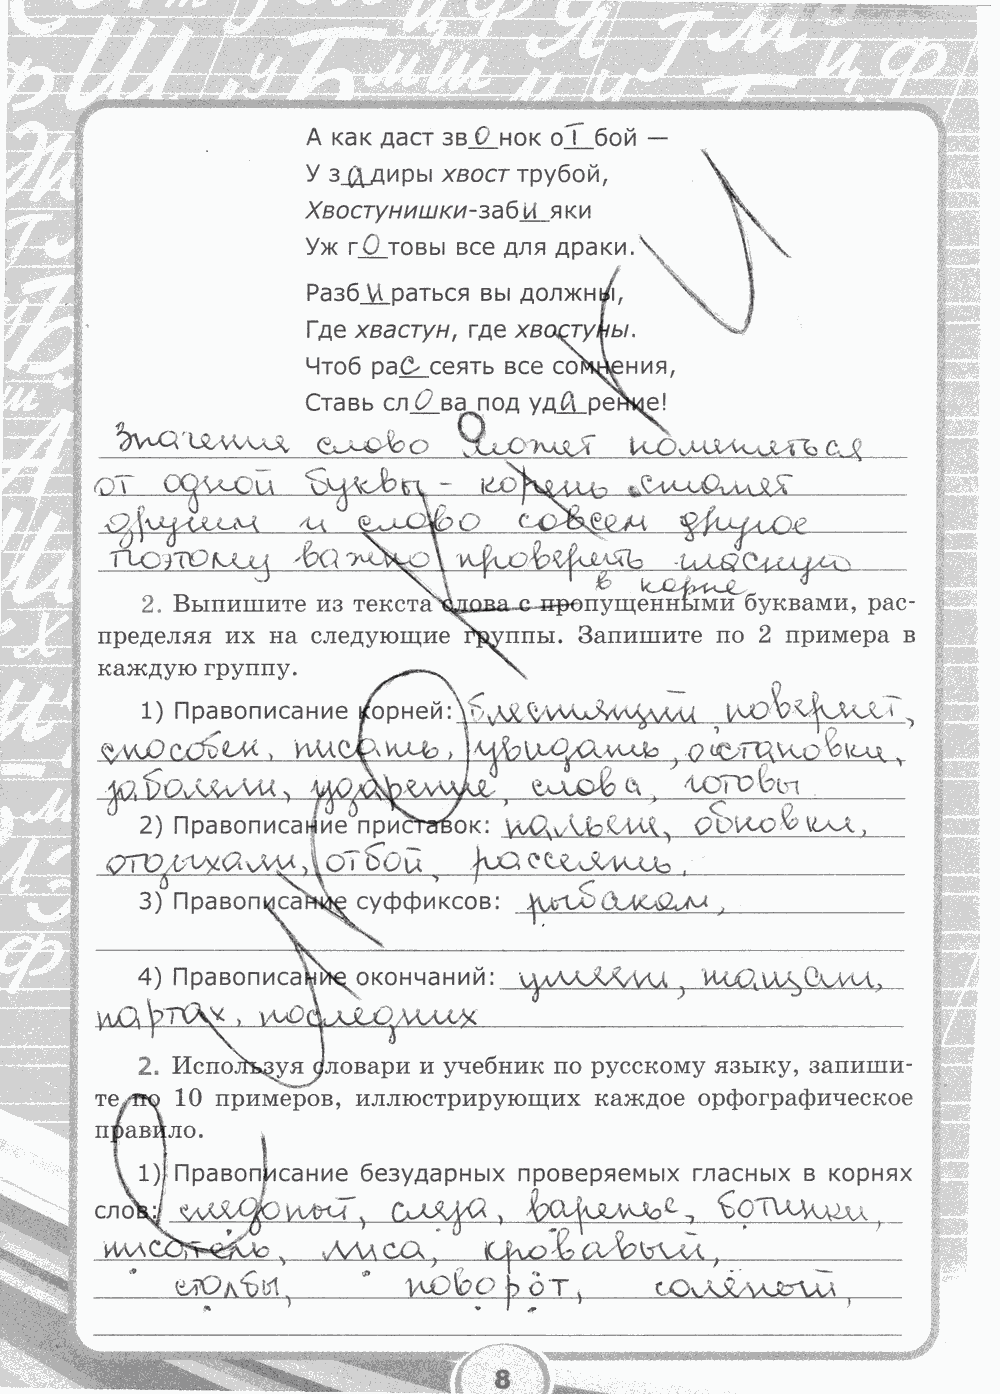 А как даст звонок отбой —
У задиры хвост трубой,
Хвостунишки-забияки
Уж готовы все для драки.
Разбираться вы должны,
Где хвастун, где хвостуны.
Чтоб рассеять все сомнения,
Ставь слова под ударение!
Значение слово может поменяться
от одной буквы - корень станет
другим и слово совсем другое
поэтому важно проверить гласную
в корне
2. Выпишите из текста слова с пропущенными буквами, рас-
пределяя их на следующие группы. Запишите по 2 примера в
каждую группу.
1) Правописание корней: блестящий, повернёт,
способен, писать, увидать, остановки,
заболели, ударение, слова, готовы
2) Правописание приставок: обновки,
отдыхали, отбой, рассеять,
3) Правописание суффиксов: рыбаком,
4) Правописание окончаний: умеет, тащат,
партах, последних
2. Используя словари и учебник по русскому языку, запиши-
те по 10 примеров, иллюстрирующих каждое орфографическое
правило.
1) Правописание безударных проверяемых гласных в корнях
слов: слеза, варенье, ботинки,
писатель, лиса, кровавый,
столбы, поворот, солёный,
8